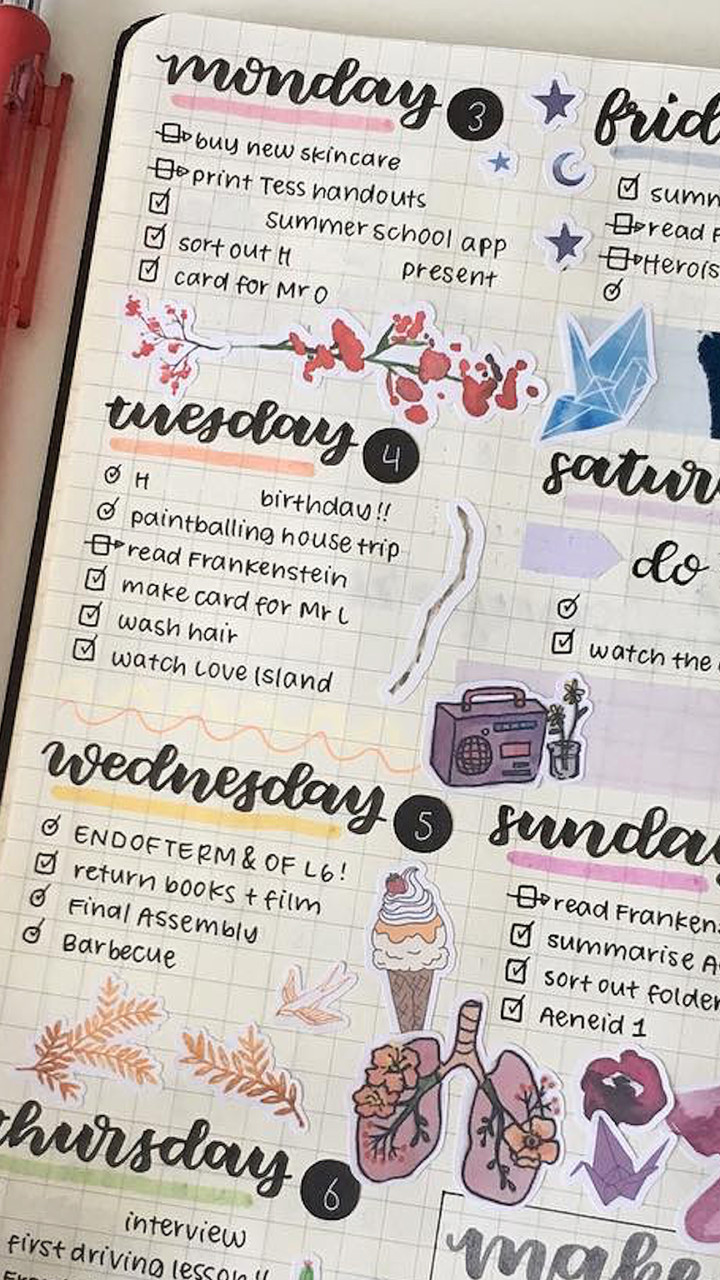 monday 3
buy new skincare
print Tess handouts
summer school app
sort out H present
card for Mr O
tuesday 4
H birthday!!
paintballing house trip
read Frankenstein
make card for Mr L
wash hair
watch Love Island
wednesday 5
END OF TERM & OF L6!
return books + film
Final Assembly
Barbecue
thursday 6
interview
first driving lesson!!
frid
summ
read F
Herois
satur
do
watch the
sunday
read Franken
summarise A
sort out folder
Aeneid 1
make